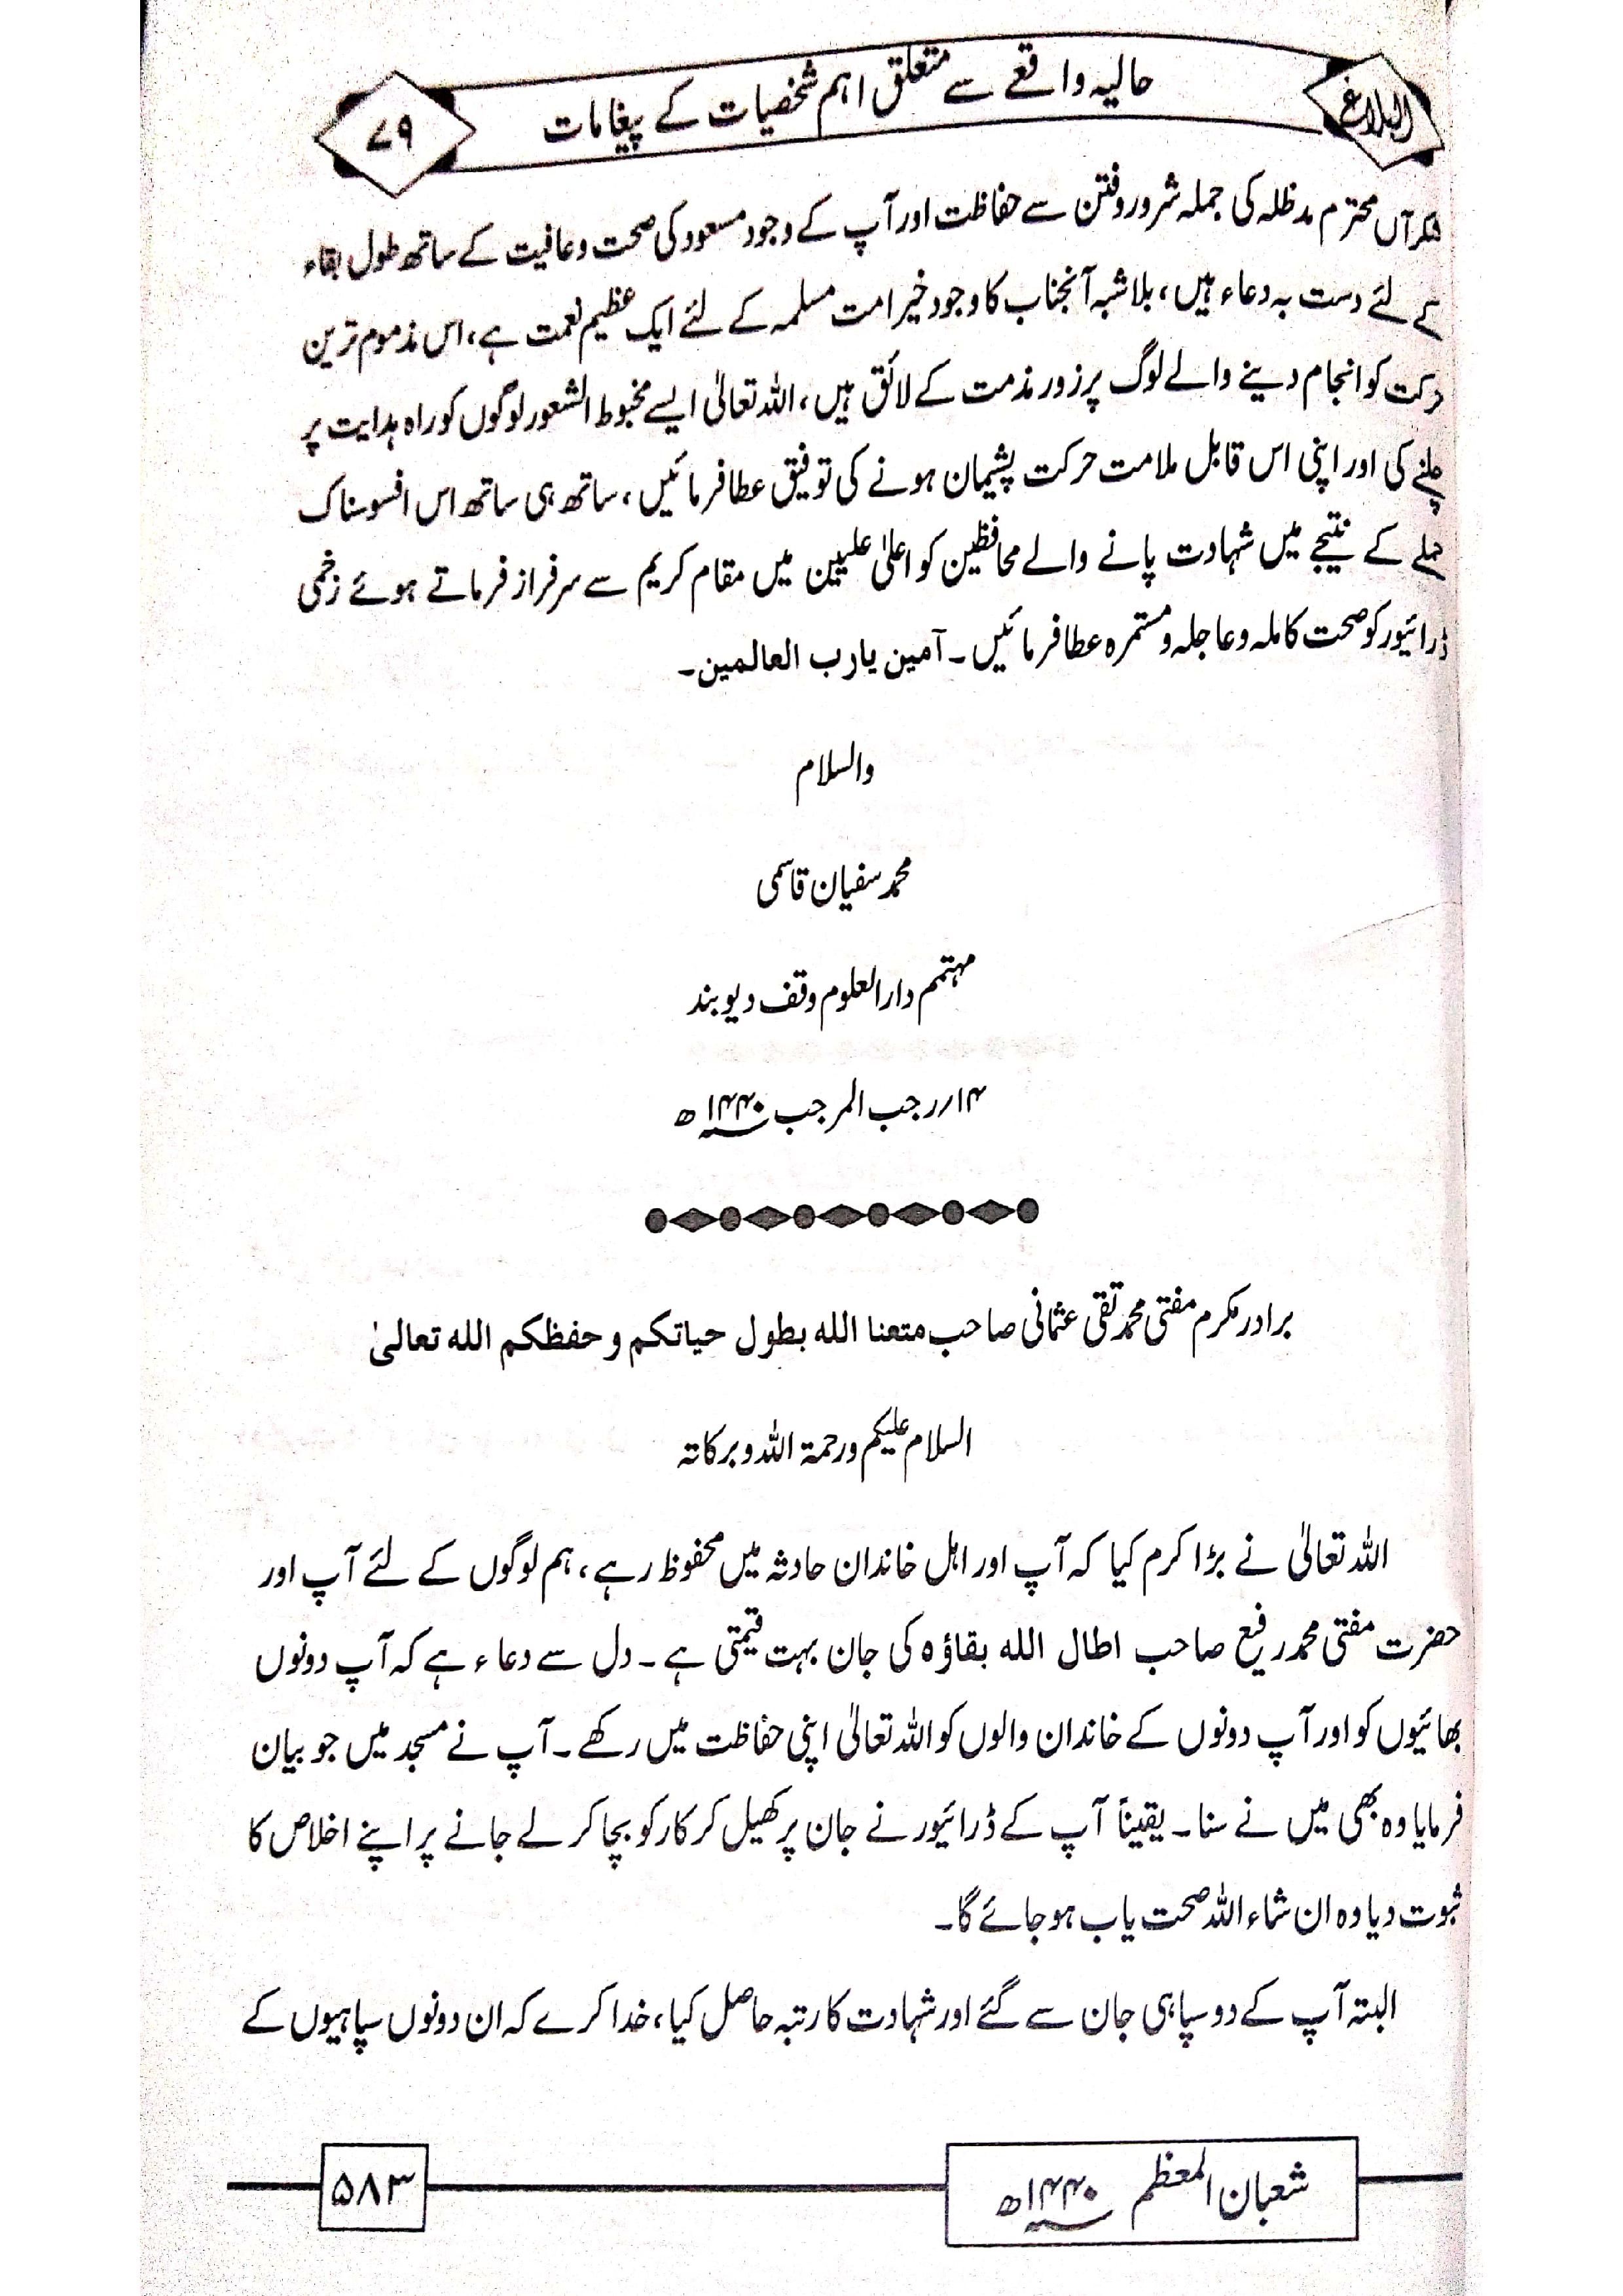 البلاغ
حالیہ واقعے سے متعلق اہم شخصیات کے پیغامات
۷۹
آں محترم مدظلہ کی جملہ شرور و فتن سے حفاظت اور آپ کے وجود مسعود کی صحت و عافیت کے ساتھ طول بقاء
کے لئے دست بہ دعاء ہیں، بلا شبہ آنجناب کا وجود خیر امت مسلمہ کے لئے ایک عظیم نعمت ہے، اس مذموم ترین
حرکت کو انجام دینے والے لوگ پرزور مذمت کے لائق ہیں، اللہ تعالیٰ ایسے مخبوط الشعور لوگوں کو راہ ہدایت پر
چلنے کی اور اپنی اس قابل ملامت حرکت پشیمان ہونے کی توفیق عطا فرمائیں، ساتھ ہی ساتھ اس افسوسناک
حملے کے نتیجے میں شہادت پانے والے محافظین کو اعلیٰ علیین میں مقام کریم سے سرفراز فرماتے ہوئے زخمی
ڈرائیور کو صحت کاملہ و عاجلہ و مستمرہ عطا فرمائیں۔ آمین یا رب العالمین۔
والسلام
محمد سفیان قاسمی
مہتمم دارالعلوم وقف دیوبند
۱۴/رجب المرجب ۱۴۴۰ھ
برادر مکرم مفتی محمد تقی عثمانی صاحب متعنا اللہ بطول حیاتکم و حفظکم اللہ تعالیٰ
السلام علیکم ورحمۃ اللہ وبرکاتہ
اللہ تعالیٰ نے بڑا کرم کیا کہ آپ اور اہل خاندان حادثہ میں محفوظ رہے، ہم لوگوں کے لئے آپ اور
حضرت مفتی محمد رفیع صاحب اطال اللہ بقاؤہ کی جان بہت قیمتی ہے۔ دل سے دعاء ہے کہ آپ دونوں
بھائیوں کو اور آپ دونوں کے خاندان والوں کو اللہ تعالیٰ اپنی حفاظت میں رکھے۔ آپ نے مسجد میں جو بیان
فرمایا وہ بھی میں نے سنا۔ یقیناً آپ کے ڈرائیور نے جان پر کھیل کر کار کو بچا کر لے جانے پر اپنے اخلاص کا
ثبوت دیا وہ ان شاء اللہ صحت یاب ہو جائے گا۔
البتہ آپ کے دو سپاہی جان سے گئے اور شہادت کا رتبہ حاصل کیا، خدا کرے کہ ان دونوں سپاہیوں کے
شعبان المعظم ۱۴۴۰ھ
۵۸۳